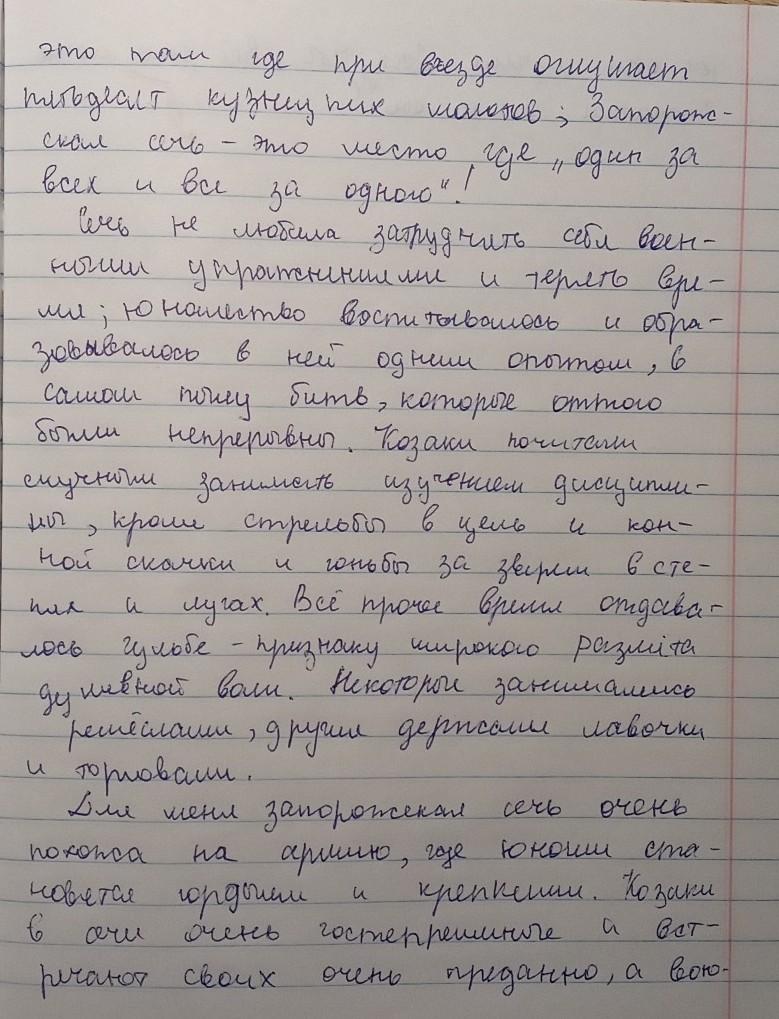 это там где при везде оглушает
пятьдесят кузнецких молотов; Запорож-
ская сечь – это место, где „один за
всех и все за одного"!
Сечь не любила затруднять себя воен-
ными упражнениями и терять вре-
мя; юношество воспитывалось и обра-
зовывалось в ней одним опытом, в
самом пылу битв, которые оттого
были непрерывны. Козаки почитали
скучным занимать изучением дисципли-
ны, кроме стрельбы в цель и кон-
ной скачки и гоньбы за зверем в сте-
пях и лугах. Всё прочее время отдава-
лось гульбе – признаку широкого размёта
душевной воли. Некоторые занимались
ремёслами, другие держали лавочки
и торговали.
Для меня запорожская сечь очень
похожа на армию, где юноши ста-
новятся гордыми и крепкими. Козаки
в сечи очень гостеприимные и вст-
речают своих очень преданно, а вою-